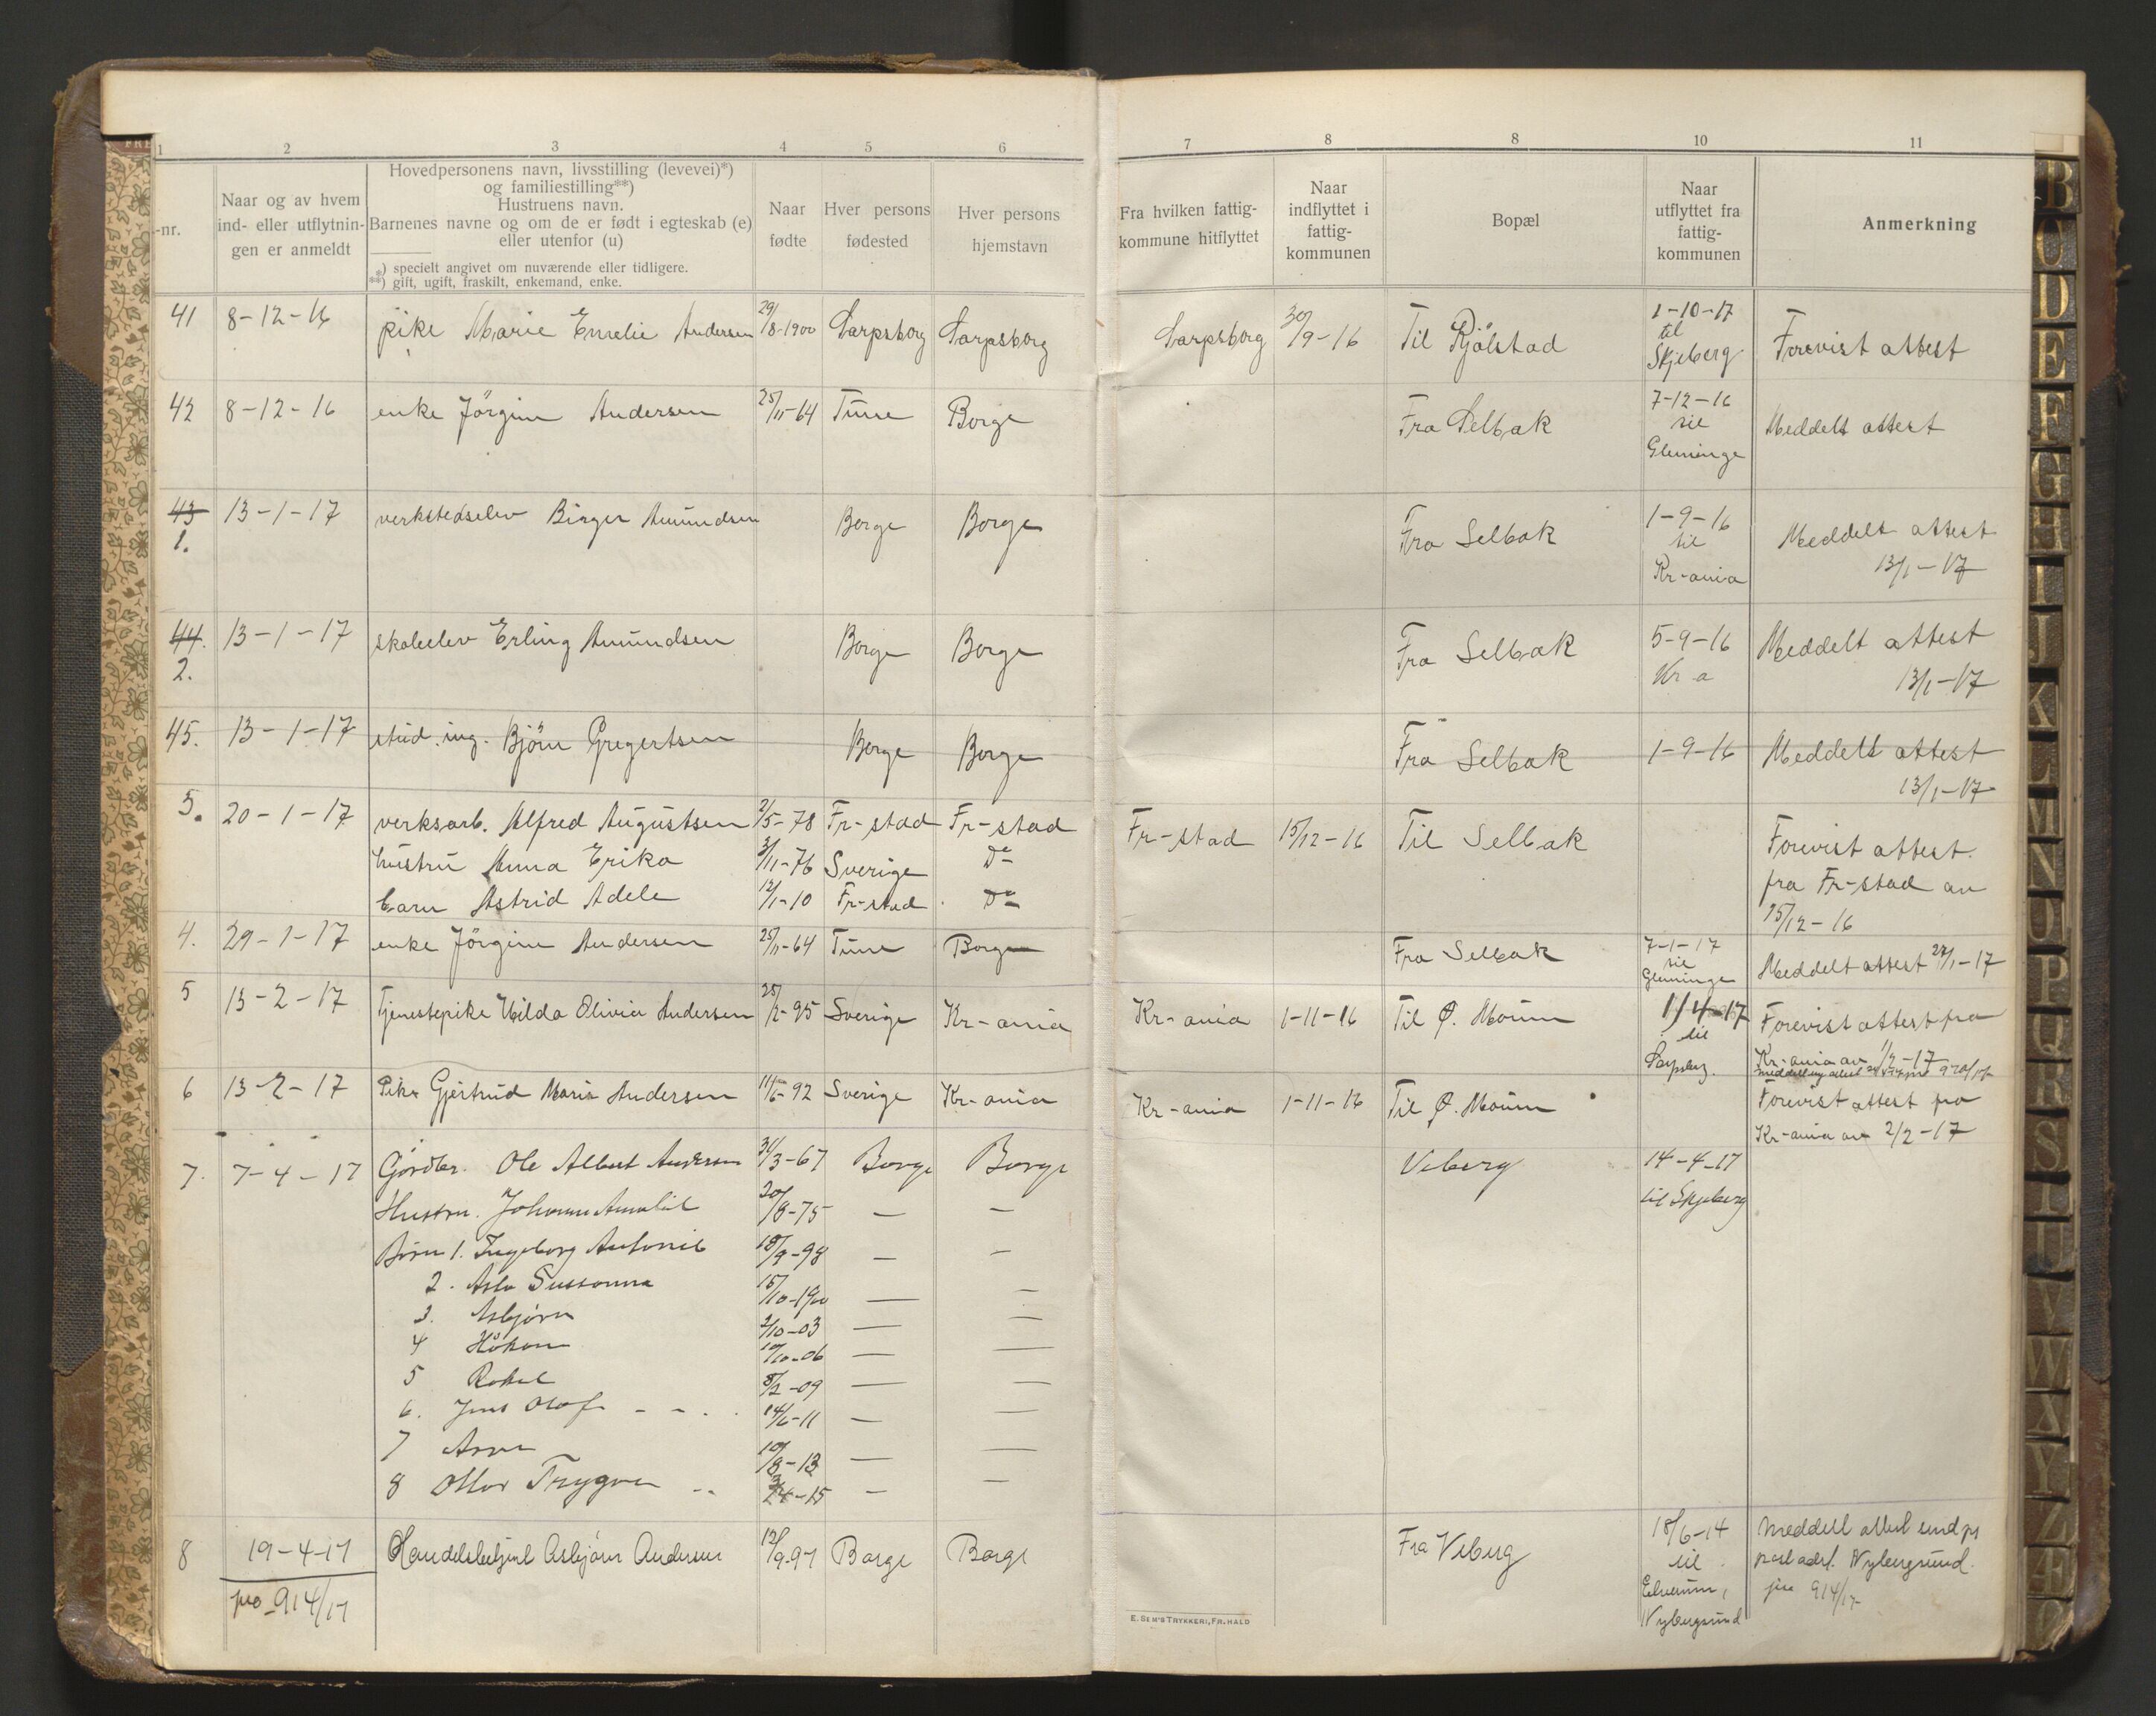 1 2 3 4 5 6 7 8 8 10 11
-nr.
Naar og av hvem
ind- eller utflytnin-
gen er anmeldt
Hovedpersonens navn, livsstilling (levevei)*)
og familiestilling**)
Hustruens navn.
Barnenes navne og om de er født i egteskab (e)
eller utenfor (u)
*) specielt angivet om nuværende eller tidligere.
**) gift, ugift, fraskilt, enkemand, enke.
Naar
fødte
Hver persons
fødested
Hver persons
hjemstavn
Fra hvilken fattig-
kommune hitflyttet
Naar
indflyttet i
fattig-
kommunen
Bopæl
Naar
utflyttet fra
fattig-
kommunen
Anmerkning
41 8-12-16 pike Marie Emelie Andersen 29/8-1900 Sarpsborg Sarpsborg Sarpsborg 30/9-16 Til Kjölstad 1-10-17 Forevist attest
til
Skjeberg
42 8-12-16 enke Jörgine Andersen 25/11-64 Tune Borge Fra Selbak 7-12-16 Meddelt attest
til
Glemminge
43 13-1-17 verkstedselev Birger Amundsen Borge Borge Fra Selbak 1-9-16 Meddelt attest
1. til 13/1-17
Kr-ania
44. 13-1-17 skoleelev Erling Amundsen Borge Borge Fra Selbak 5-9-16 Meddelt attest
2. Kr a 13/1-17
45. 13-1-17 stud. ing. Björn Gregertsen Borge Borge Fra Selbak 1-9-16 Meddelt attest
13/1-17
3. 20-1-17 verksarb. Alfred Augustsen 2/5-78 Fr-stad Fr-stad Fr-stad 15/12-16 Til Selbak Forevist attest.
hustru Anna Erika 3/11-76 Sverige Do fra Fr-stad av
barn Astrid Adele 12/1-10 Fr-stad Do 15/12-16
4. 29-1-17 enke Jörgine Andersen 25/11-64 Tune Borge Fra Selbak 7-1-17 Meddelt attest 29/1-17
til
Glemminge
5 13-2-17 Tjenestepike Hilda Olivia Andersen 25/2-95 Sverige Kr-ania Kr-ania 1-11-16 Til Ø. Moum 1/4-17 Forevist attest fra
til Kr-ania av 1/2-17
Sarpsbg.
6 13-2-17 Pike Gjertrud Marie Andersen 11/6-92 Sverige Kr-ania Kr-ania 1-11-16 Til Ø. Moum Forevist attest fra
Kr-ania av 2/2-17
7. 7-4-17 Gårdbr. Ole Albert Andersen 31/3-67 Borge Borge Viberg 14-4-17
Hustru. Johanne Amalie 20/8-75 — — til Skjeberg
Børn 1. Ingeborg Antonie 18/9-98 — —
2. Asla Sussanna 15/10-1900 — —
3. Asbjørn 2/10-03 — —
4 Håkon 10/10-06 — —
5 Rakel 8/2-09 — —
6. Jens Olaf 14/6-11 — —
7 Arne 10/8-13 — —
8 Ottar Trygve 4-15 — —
8 19-4-17 Handelsbetjent Asbjørn Andersen 12/9-97 Borge Borge Fra Viberg 18/6-14 Meddelt attest send pr
pro 914/17 til post adr. Nybergsund.
Elverum, jnr 914/17
Nybergsund
E. SEM'S TRYKKERI, FR.HALD
B C D E F G H I J K L M N O P Q R S T U V W X Y Z Æ Ø